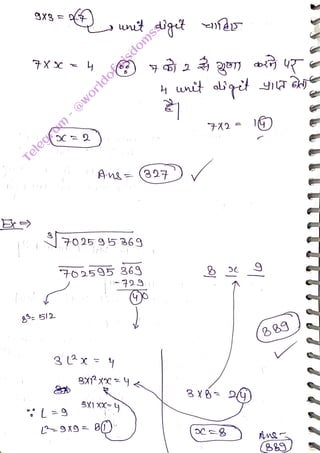 9×3 = 27 → unit digit चाहिए
7 × x = 4 ∵ 7 को 2 से गुणा करने पर
4 unit digit प्राप्त होता
है।
7×2 = 14
x = 2
Ans = 327
Telegram - @worldofwisdoms
Ex ⇒
∛702595369
702595 369
-729
40
8³ = 512
8 x 9
889
3L²x = 4
3×1²×x = 4
3×1×x = 4
∵ L = 9
L² = 9×9 = 81
3×8 = 24
x = 8
Ans - 889